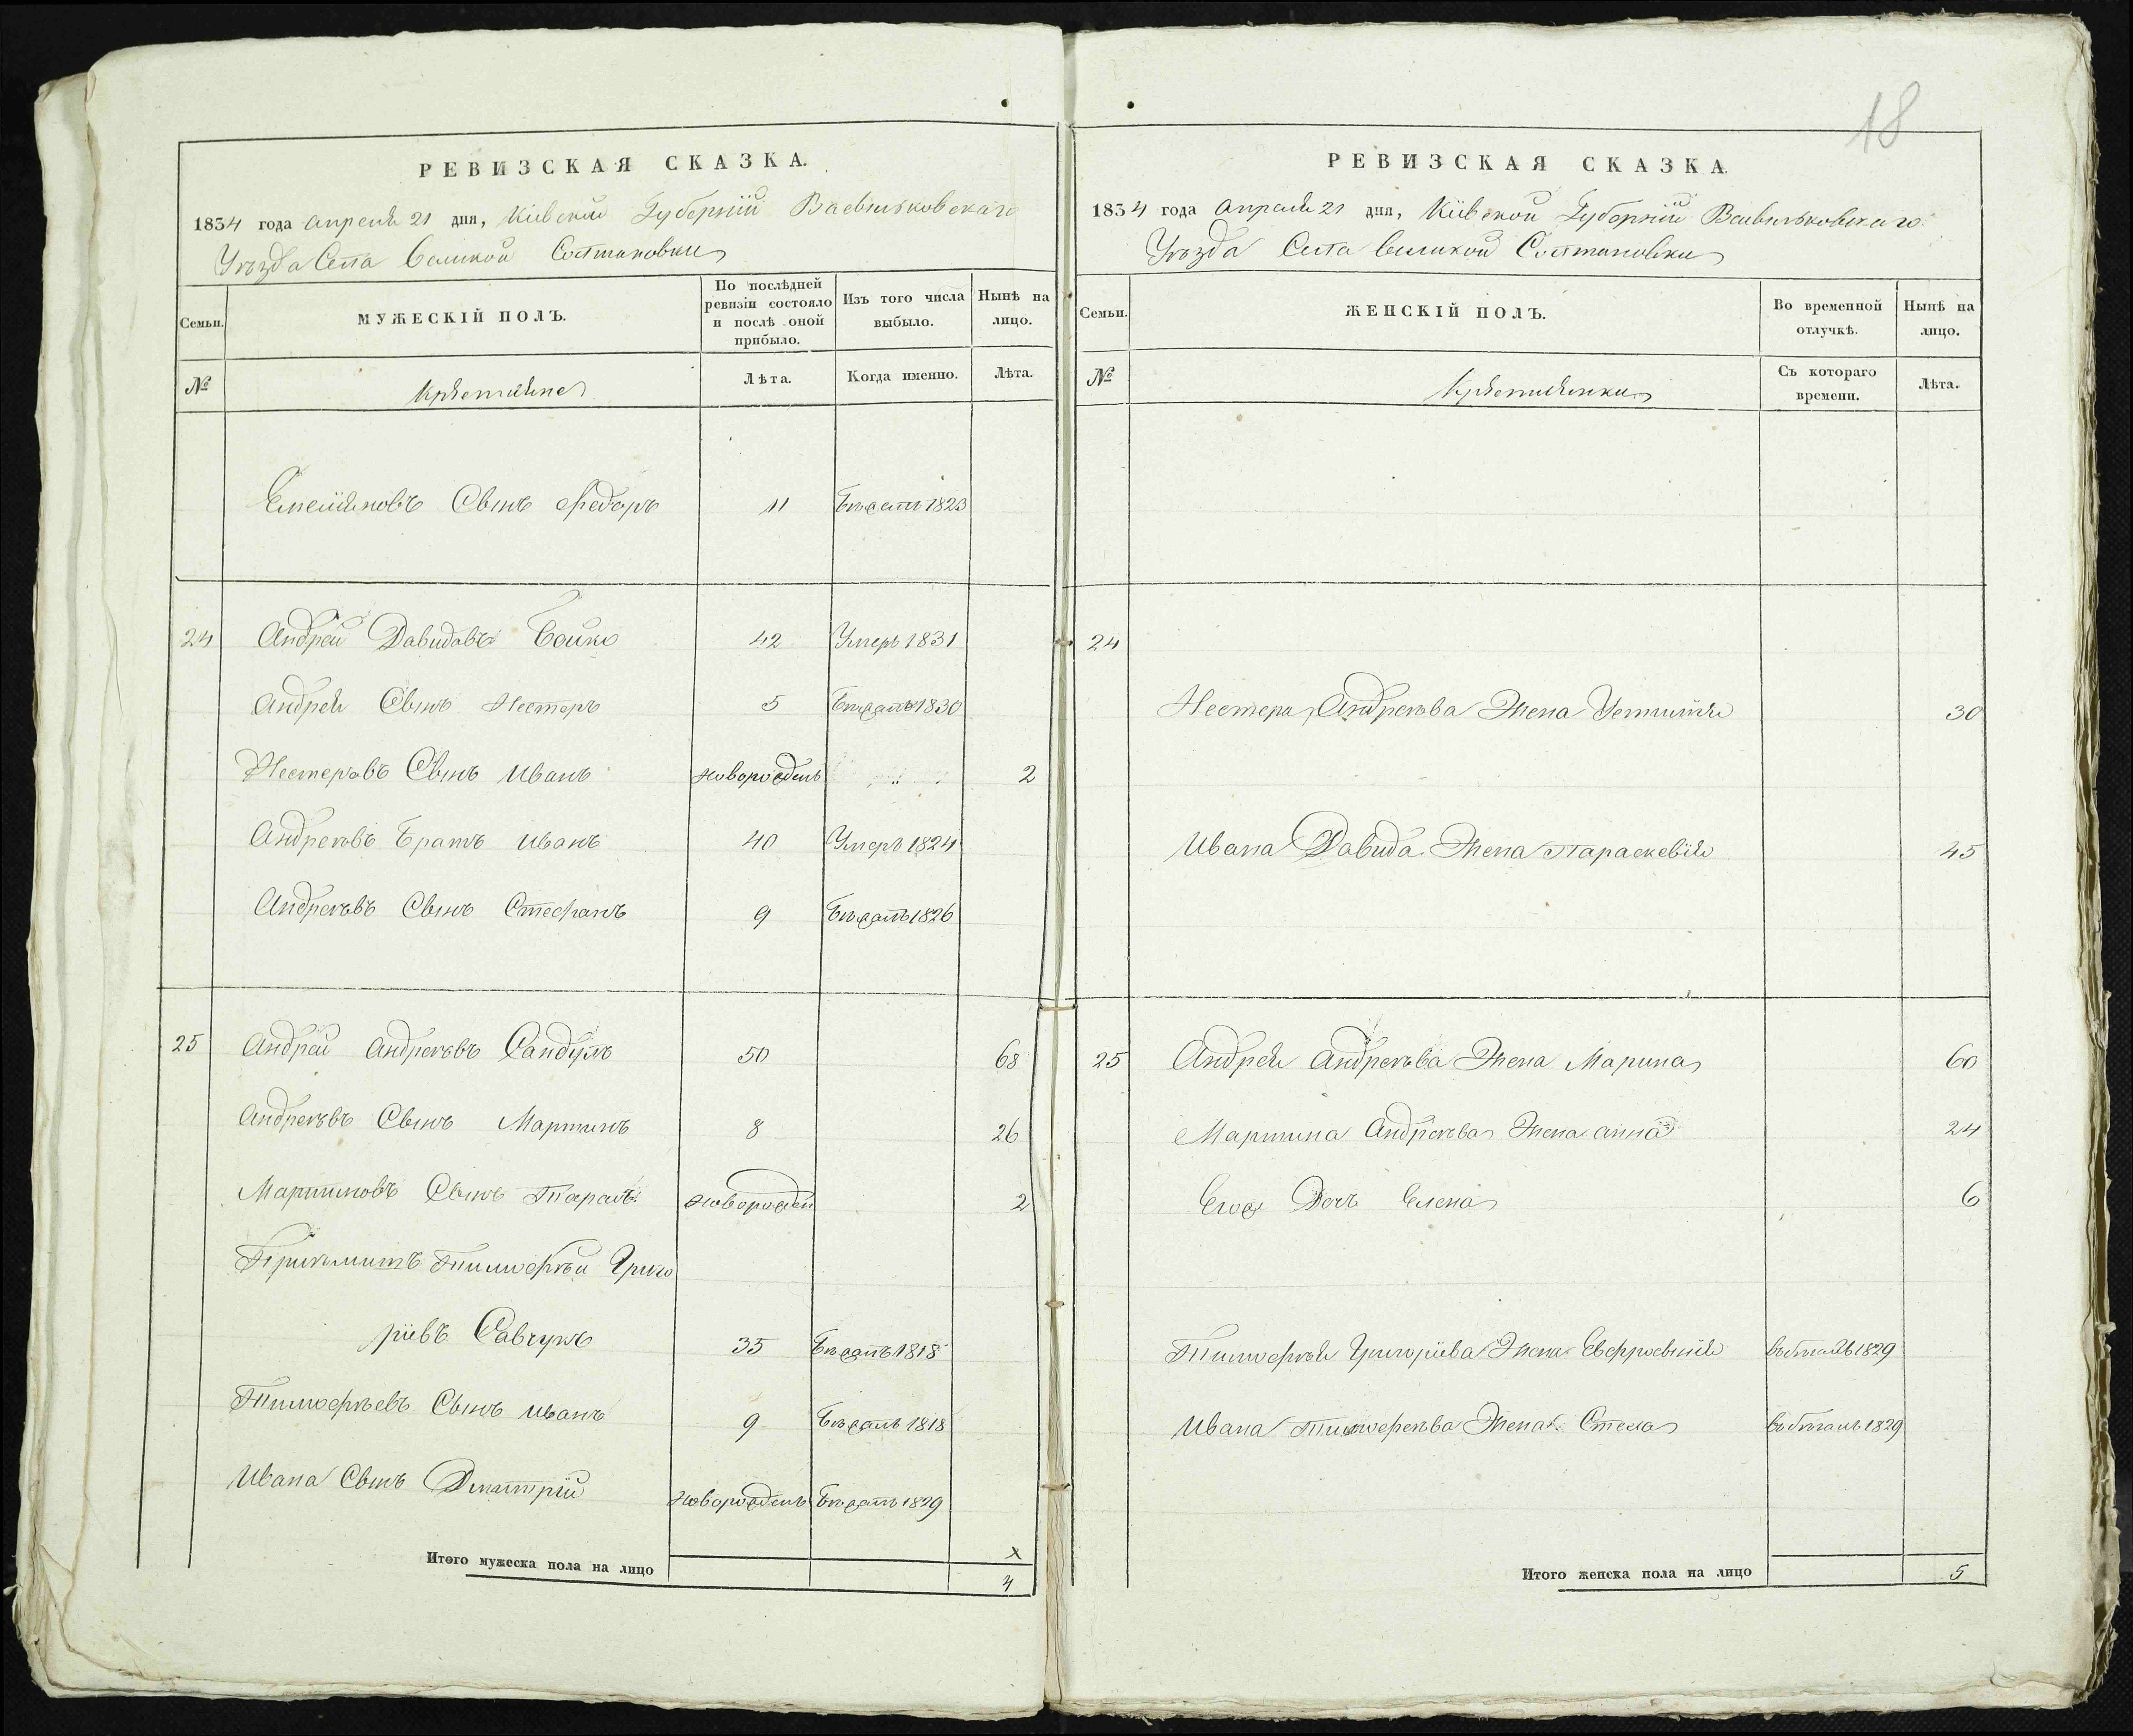 18
РЕВИЗСКАЯ СКАЗКА.
1834 года Апреля 21 дня, Кіевской Губерніи Васильковскаго
Уѣзда Села Великой Солтановки
Семьи.
МУЖЕСКІЙ ПОЛЪ.
По послѣдней ревизіи состояло и послѣ оной прибыло.
Изъ того числа выбыло.
Нынѣ на лицо.
№
Крестьяне
Лѣта.
Когда именно.
Лѣта.
Сынъ Федоръ 11 Бѣжалъ 1823
24 Андрей Давидовъ Бойко 42 Умеръ 1831
Андрея Сынъ Нестеръ 5 Бѣжалъ 1830
Нестеровъ Сынъ Иванъ новорожденъ 2
Андреевъ Братъ Иванъ 40 Умеръ 1824
Андреевъ Сынъ Стефанъ 9 Бѣжалъ 1826
25 Андрей Андреевъ 50 68
Андреевъ Сынъ Мартинъ 8 26
Мартиновъ Сынъ Тарасъ новорожден 2
Тимофѣй Григо
ріевъ Савчукъ 35 Бѣжалъ 1818
Тимофѣевъ Сынъ Иванъ 9 Бѣжалъ 1818
Ивана Сынъ Дмитрій новорожденъ Бѣжалъ 1829
Итого мужеска пола на лицо 4
РЕВИЗСКАЯ СКАЗКА.
1834 года Апреля 21 дня, Кіевской Губерніи Васильковскаго
Уѣзда Села Великой Солтановки
Семьи.
ЖЕНСКІЙ ПОЛЪ.
Во временной отлучкѣ.
Нынѣ на лицо.
№
Крестьянки
Съ котораго времени.
Лѣта.
24
Нестера Андреева Жена 30
Ивана Давида Жена Параскевія 45
25 Андрея Андреева Жена Марина 60
Мартина Андреева Жена Анна 24
Его Дочь Елена 6
Тимофѣя Григоріева Жена Евфросинія 1829
Ивана Тимофеева Жена 1829
Итого женска пола на лицо 5